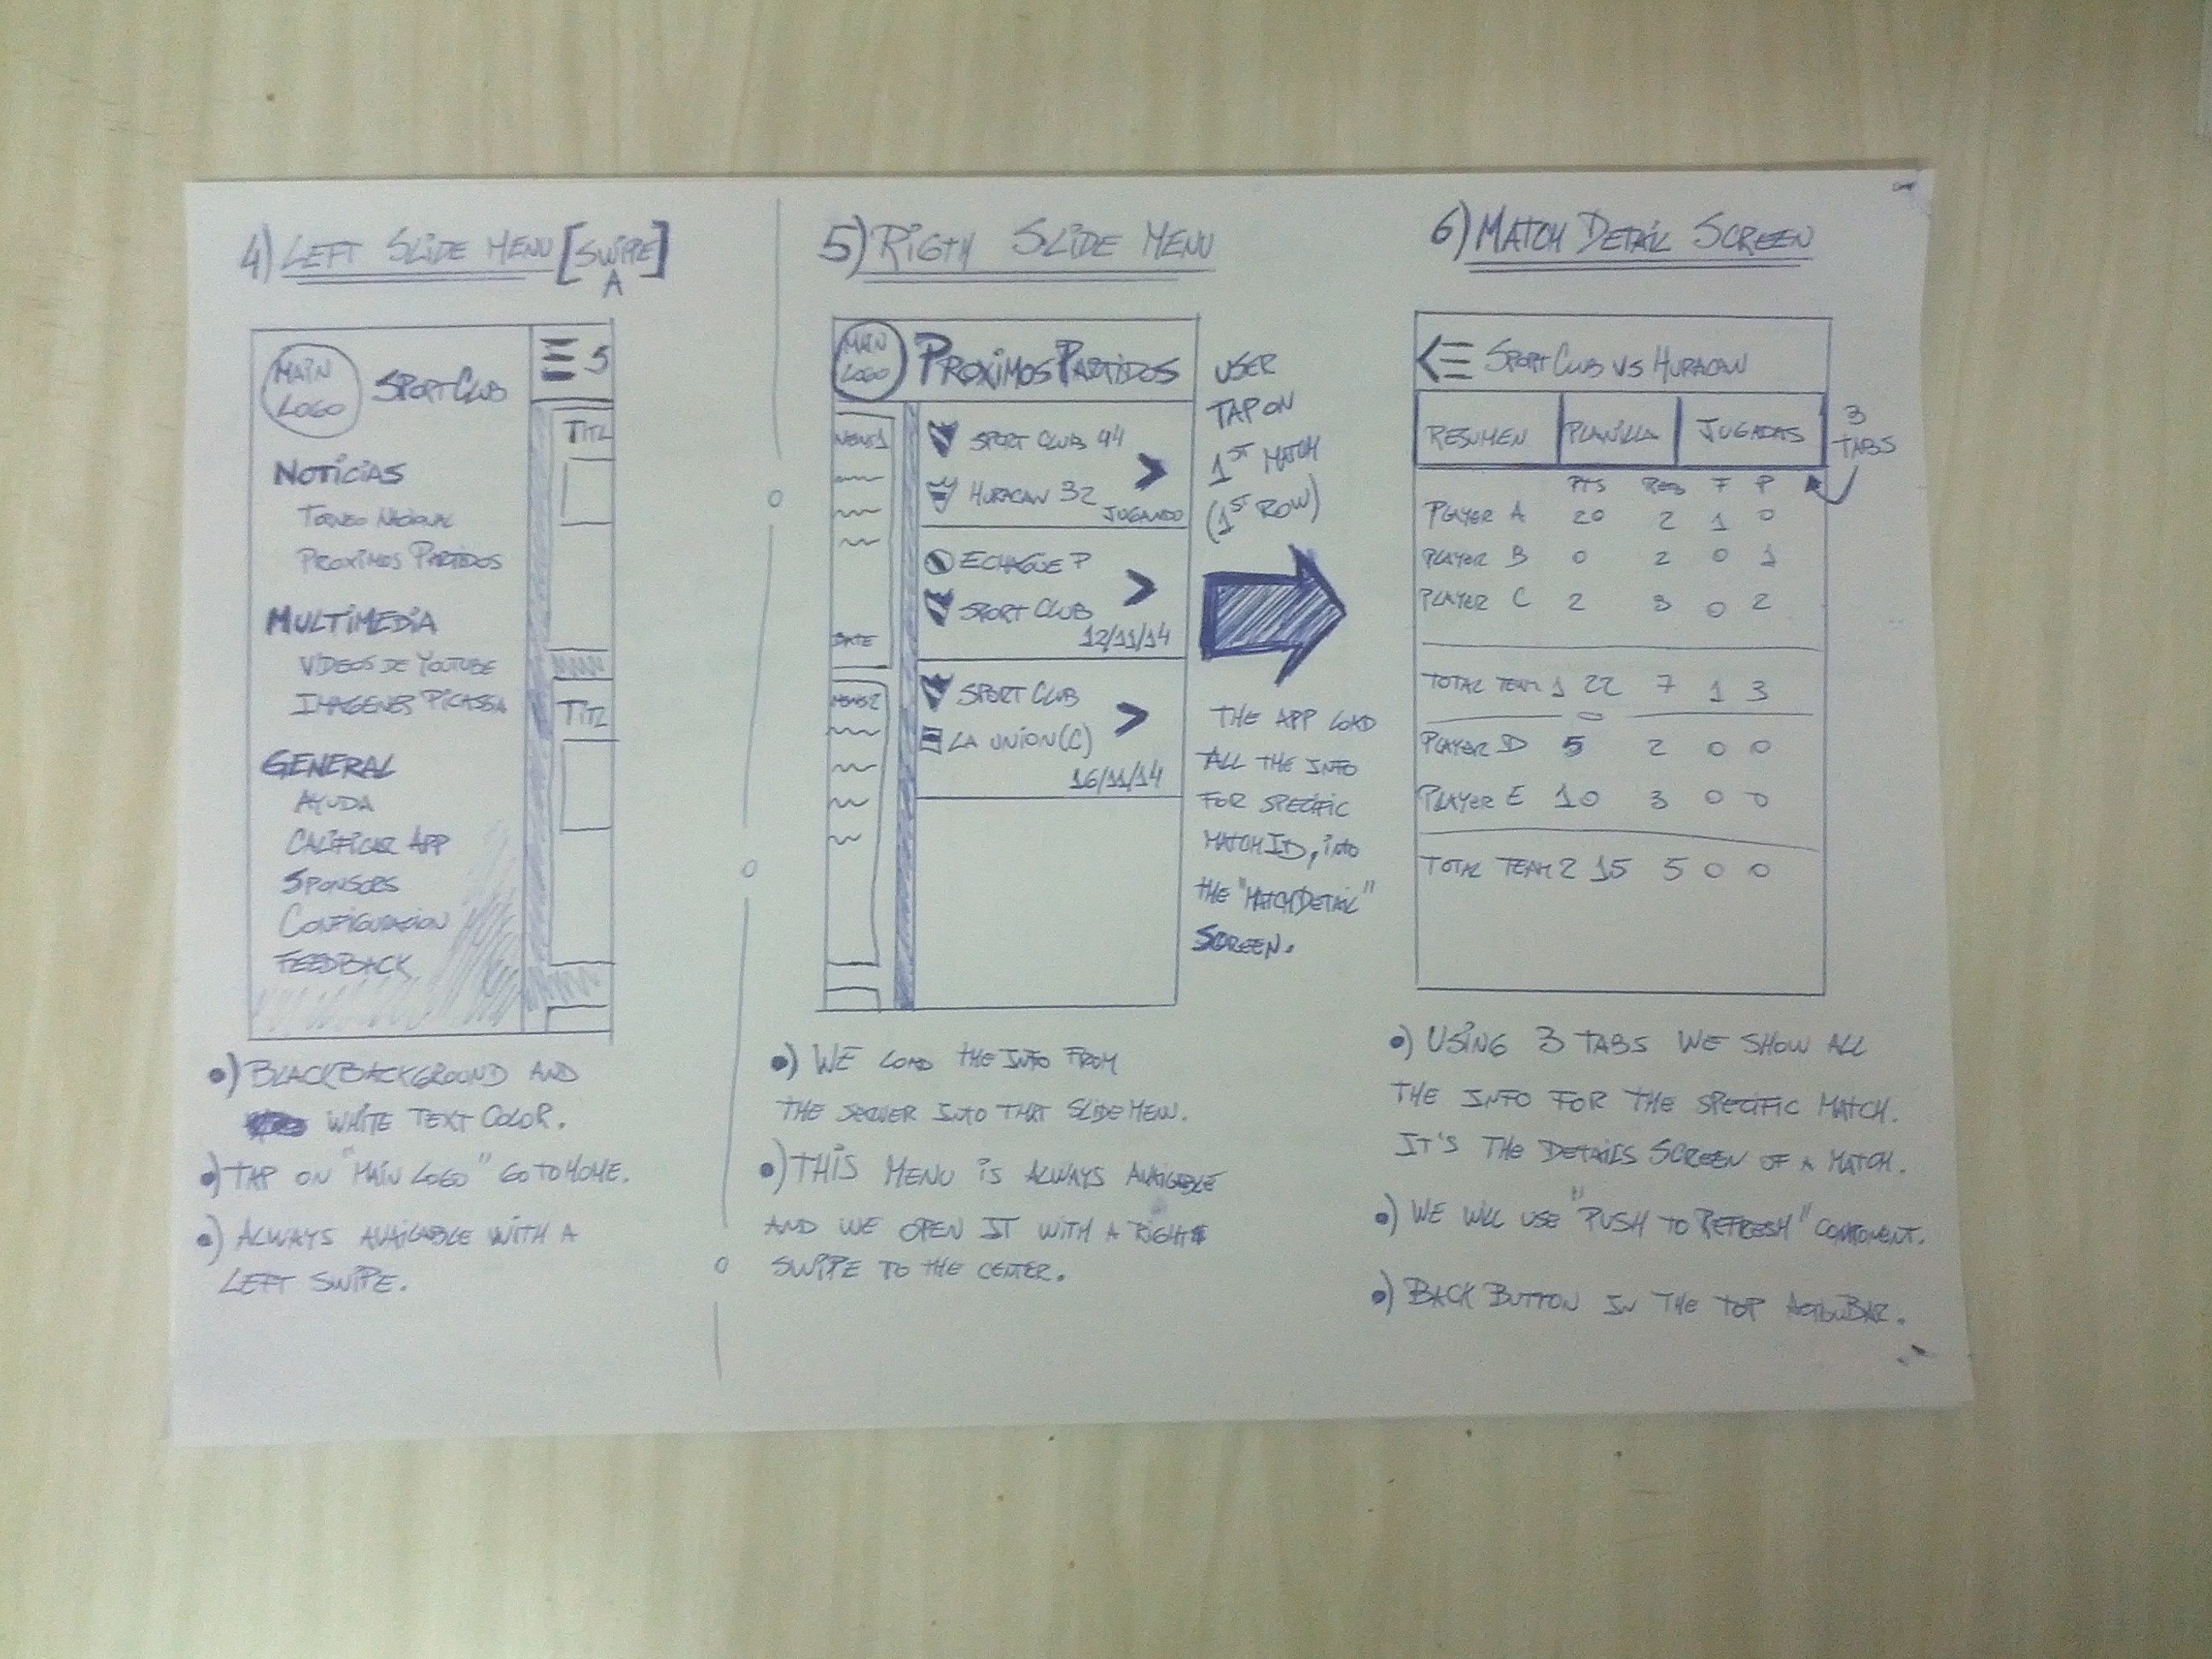 4) LEFT SLIDE MENU [SWIPE]
A
MAIN
LOGO
SPORT CLUB
5
NOTICIAS
TORNEO NACIONAL
PROXIMOS PARTIDOS
MULTIMEDIA
VIDEOS DE YOUTUBE
IMAGENES PICASSA
GENERAL
AYUDA
CALIFICAR APP
SPONSORS
CONFIGURACION
FEEDBACK
TITL
TITL
•) BLACK BACKGROUND AND
WHITE TEXT COLOR.
•) TAP ON "MAIN LOGO" GO TO HOME.
•) ALWAYS AVAILABLE WITH A
LEFT SWIPE.
5) RIGTH SLIDE MENU
MAIN
LOGO
PROXIMOS PARTIDOS
NEWS1
DATE
NEWS2
SPORT CLUB 44
HURACAN 32
JUGANDO
>
ECHAGUE P
SPORT CLUB
12/11/14
>
SPORT CLUB
LA UNION (C)
16/11/14
>
USER
TAP ON
1ST MATCH
(1ST ROW)
THE APP LOAD
ALL THE INFO
FOR SPECIFIC
MATCH ID, INTO
THE "MATCH DETAIL"
SCREEN.
•) WE LOAD THE INFO FROM
THE SERVER INTO THAT SLIDE MENU.
•) THIS MENU IS ALWAYS AVAILABLE
AND WE OPEN IT WITH A RIGHT
SWIPE TO THE CENTER.
6) MATCH DETAIL SCREEN
SPORT CLUB VS HURACAN
RESUMEN PLANILLA JUGADAS
3
TABS
PTS REB F P
PLAYER A 20 2 1 0
PLAYER B 0 2 0 1
PLAYER C 2 3 0 2
TOTAL TEAM 1 22 7 1 3
PLAYER D 5 2 0 0
PLAYER E 10 3 0 0
TOTAL TEAM 2 15 5 0 0
•) USING 3 TABS WE SHOW ALL
THE INFO FOR THE SPECIFIC MATCH.
IT'S THE DETAILS SCREEN OF A MATCH.
•) WE WILL USE "PUSH TO REFRESH" COMPONENT.
•) BACK BUTTON IN THE TOP ACTIONBAR.